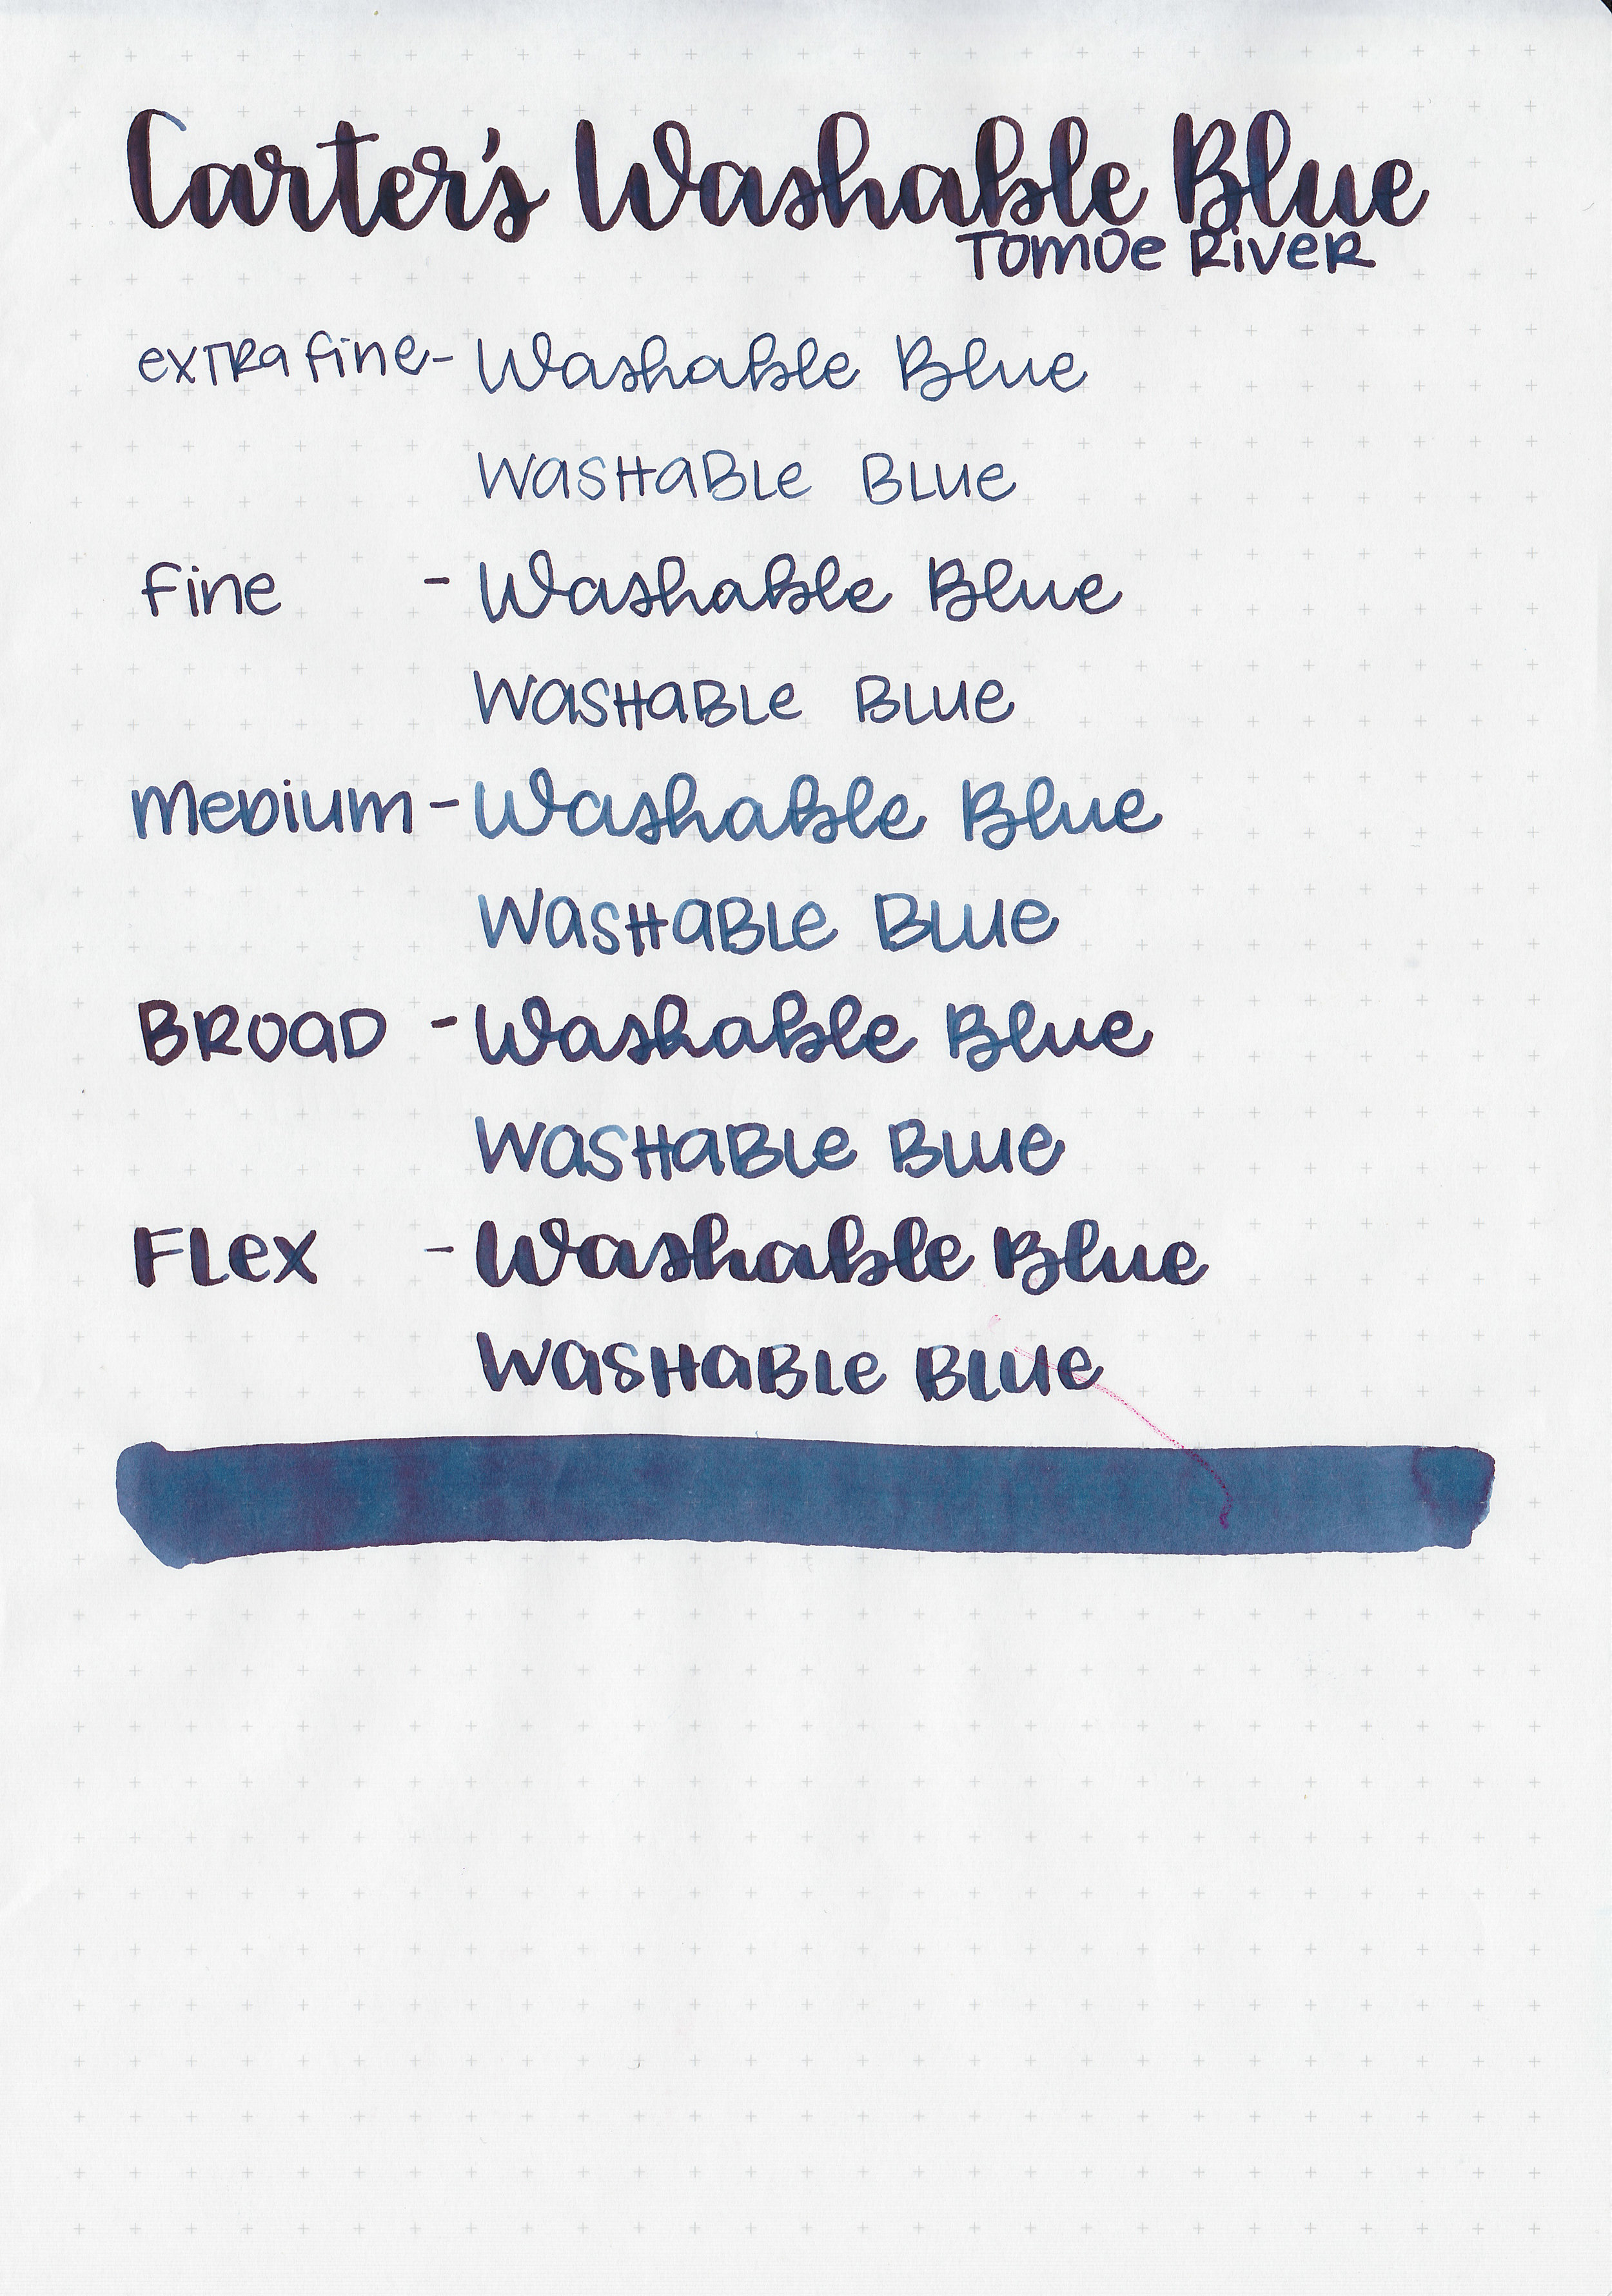 Carter's Washable Blue
Tomoe River
extra fine - Washable Blue
Washable Blue
fine - Washable Blue
Washable Blue
Medium - Washable Blue
Washable Blue
Broad - Washable Blue
Washable Blue
Flex - Washable Blue
Washable Blue